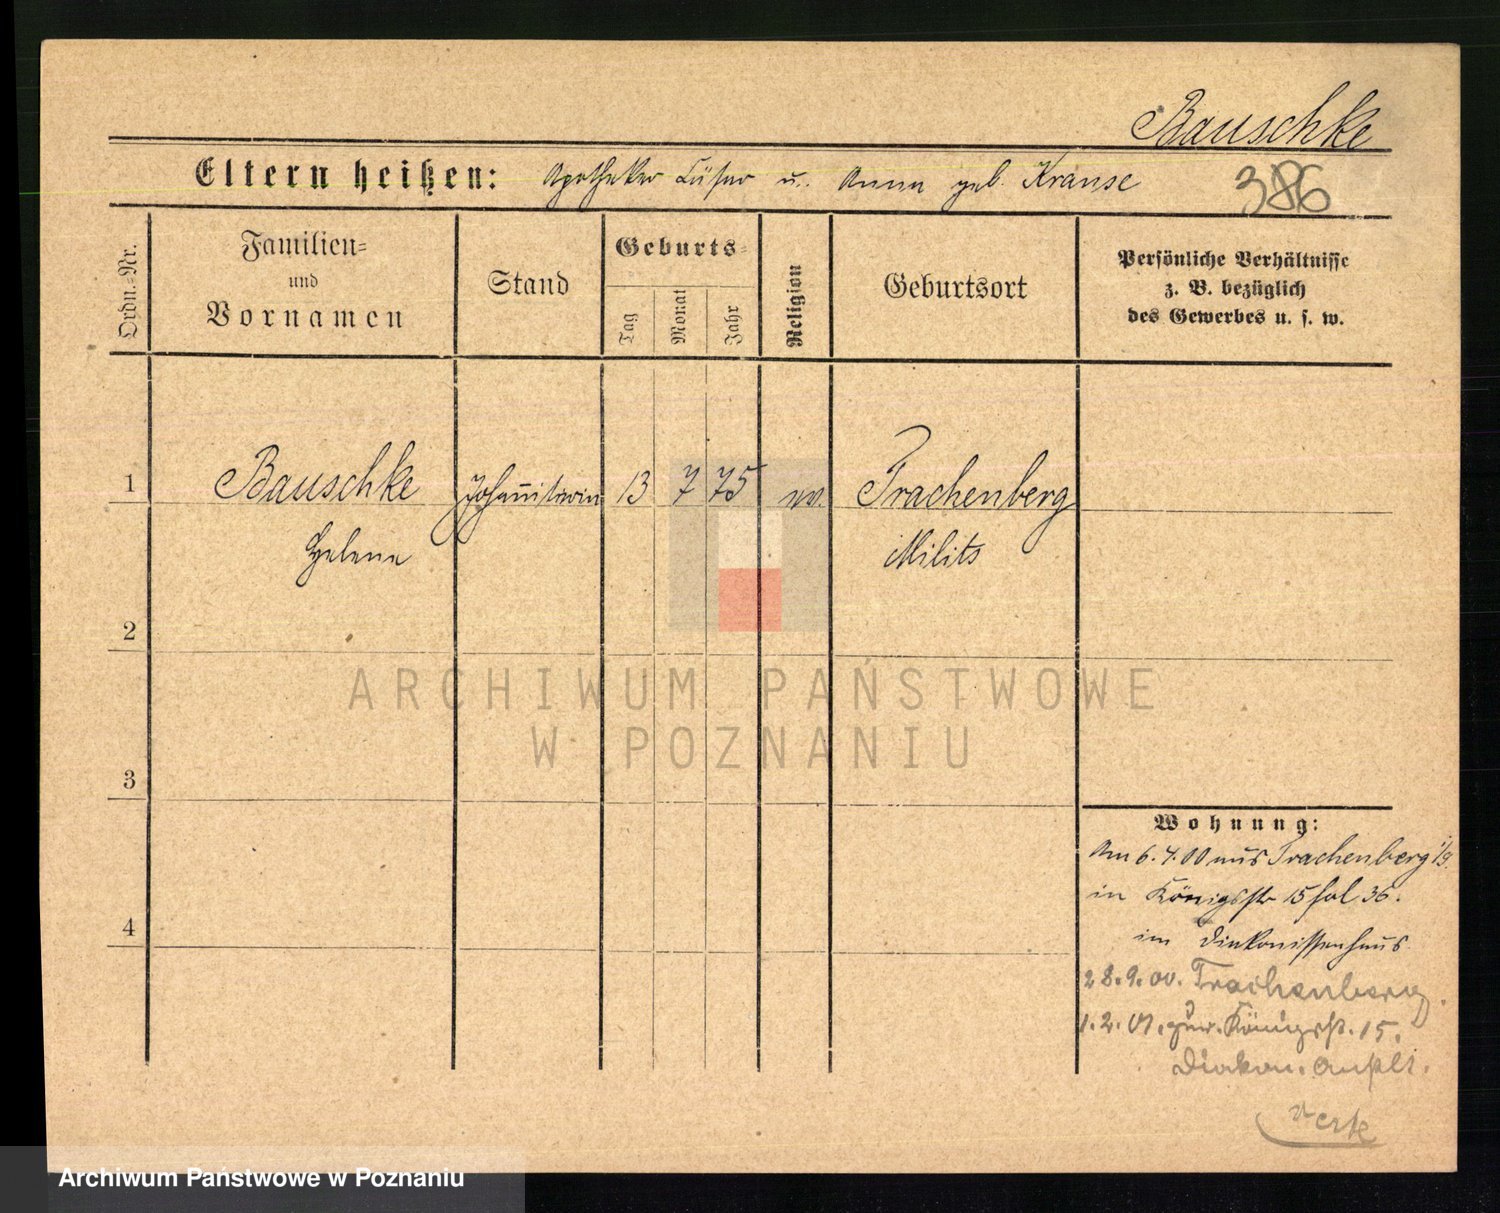 Bauschke
Eltern heißen: Apotheker u. Anna geb. Krause 386
Ordn.-Nr.
Familien-
und
Vornamen
Stand
Geburts-
Tag
Monat
Jahr
Religion
Geburtsort
Persönliche Verhältnisse
z. B. bezüglich
des Gewerbes u. s. w.
1 Bauschke Johanniterin 13 7 75 ev. Trachenberg
Helene Milits
2
3
4
ARCHIWUM PAŃSTWOWE
W POZNANIU
Wohnung:
Am 6.4.00 aus Trachenberg
in Königsstr 15 fol 36.
im Diakonissenhaus
28.9.00. Trachenberg.
1.2.01. zur. Königsstr. 15.
Diakon. Anstlt.
Archiwum Państwowe w Poznaniu